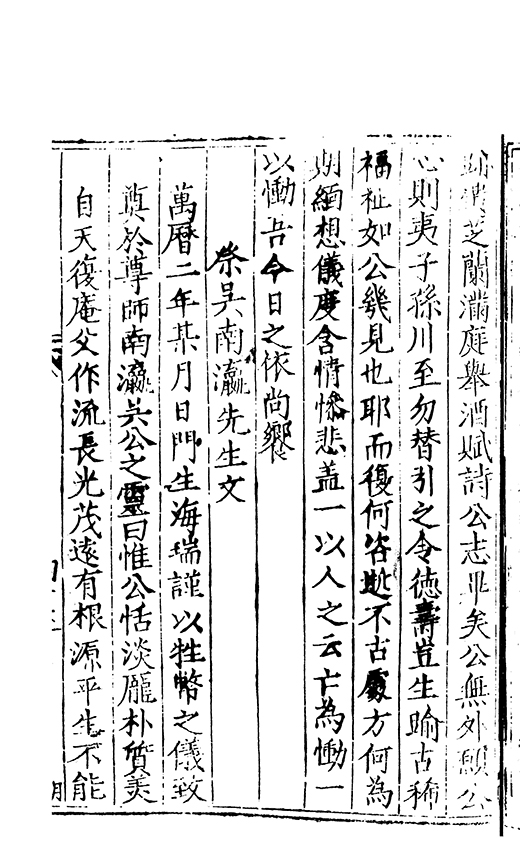 芝蘭滿庭舉酒賦詩公志畢矣公無外顧公
心則夷子孫川至勿替引之令德壽豈生踰古稀
福祉如公幾見也耶而復何咎逝不古處方何為
期緬想儀度含情慘悲蓋一以人之云亡為慟一
以慟吾今日之依尚饗
祭吳南瀛先生文
萬曆二年某月日門生海瑞謹以牲幣之儀致
奠於尊師南瀛吳公之靈曰惟公恬淡龐朴質美
自天復庵父作流長光茂遠有根源平生不能